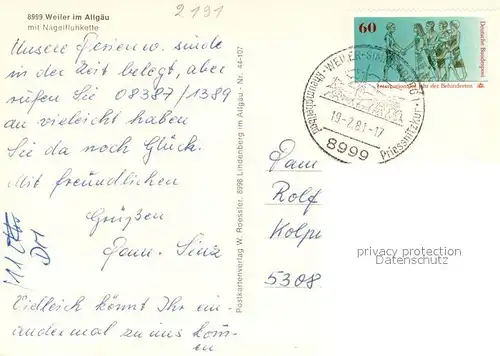 8999 Weiler im Allgäu
mit Nagelfluhkette
2191
Unsere Ferienw. sinde
in der Zeit belegt, aber
rufen Sie 08387/1389
an vieleicht haben
Sie da noch Glück.
Mit freundlichen
Grüßen
Fam. Sinz
Vielleich könnt Ihr ein-
andermal zu uns kom-
en
DM
Postkartenverlag W. Roessler, 8998 Lindenberg im Allgäu - Nr. 44-107
60
Deutsche Bundespost
Internationales Jahr der Behinderten
WEILER-SIMMERBERG
19.-2.81-17
8999
Priessnitzkur
Fam.
Rolf
Kolpi
5308
privacy protection
Datenschutz